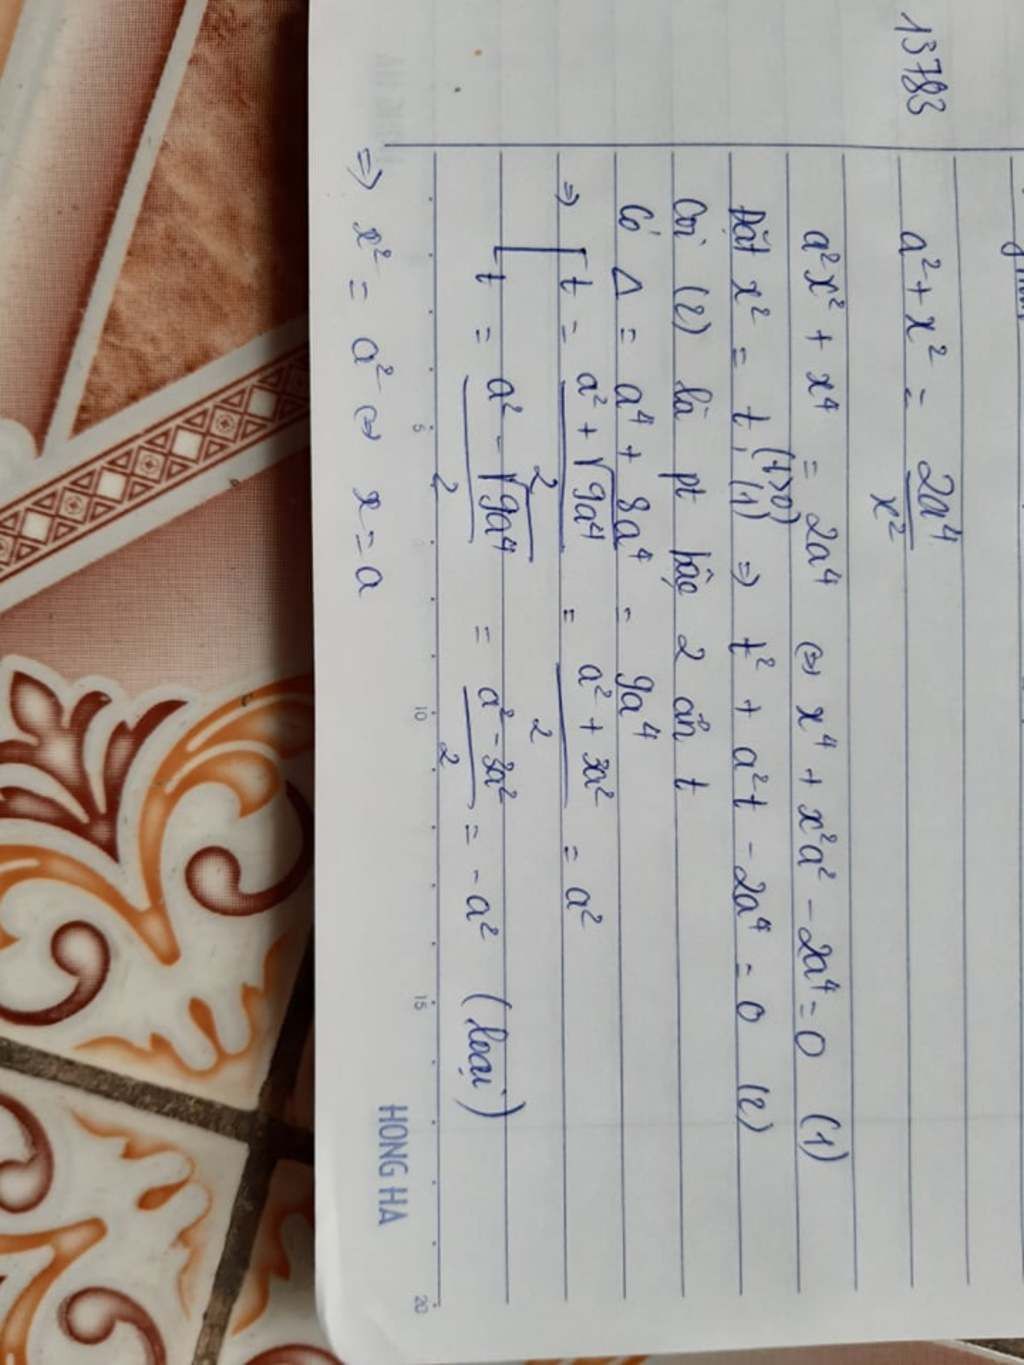 13783
a² + x² = 2a⁴/x²
a²x² + x⁴ = 2a⁴ ⇔ x⁴ + x²a² - 2a⁴ = 0 (1)
Đặt x² = t, (t>0) (1) ⇒ t² + a²t - 2a⁴ = 0 (2)
Coi (2) là pt bậc 2 ẩn t
Có Δ = a⁴ + 8a⁴ = 9a⁴
⇒ [ t = (a² + √9a⁴)/2 = (a² + 3a²)/2 = a²
t = (a² - √9a⁴)/2 = (a² - 3a²)/2 = -a² (loại)
⇒ x² = a² ⇔ x = a
5 10 15 20
HONG HA